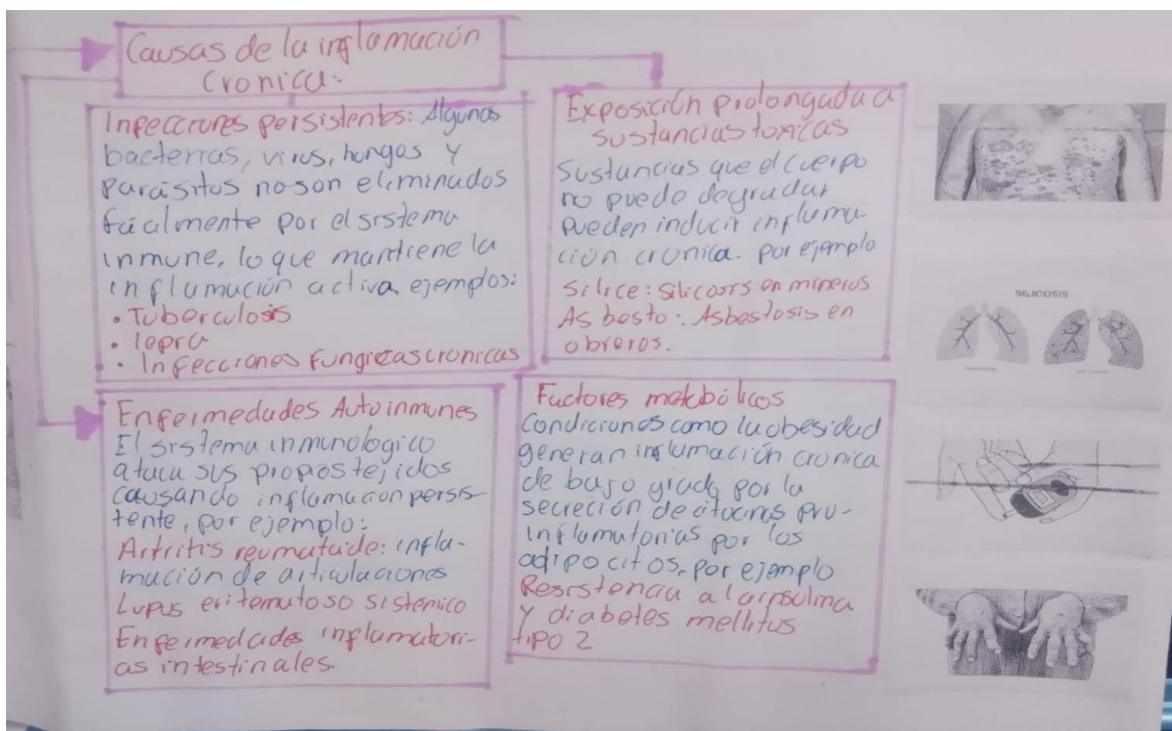 Causas de la inflamación
Cronica.
Infecciones persistentes: Algunas
bacterias, virus, hongos y
Parásitos no son eliminados
fácilmente por el sistema
inmune, lo que mantiene la
inflamación activa, ejemplos:
• Tuberculosis
• lepra
• Infecciones fungicas cronicas
Exposición prolongada a
sustancias toxicas
Sustancias que el cuerpo
no puede degradar
pueden inducir inflama-
ción cronica. por ejemplo
Silice: Silicosis en mineros
Asbesto: Asbestosis en
obreros.
Enfermedades Autoinmunes
El sistema inmunologico
ataca sus propos tejidos
causando inflamacion persis-
tente, por ejemplo:
Artritis reumatoide: infla-
mación de articulaciones
Lupus eritematoso sistemico
Enfermedades inflamatori-
as intestinales.
Factores metabólicos
Condiciones como la obesidad
generan inflamación cronica
de bajo grado por la
secreción de citocinas pro-
inflamatorias por los
adipocitos, por ejemplo
Resistencia a la insulina
y diabetes mellitus
tipo 2
SILICOSIS